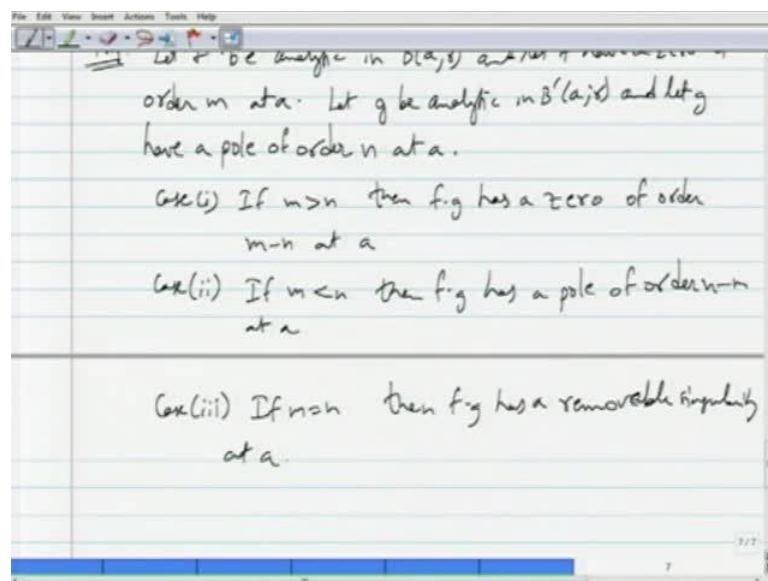 File Edit View Insert Actions Tools Help
Let f be analytic in B(a,r) and let f have a zero of
order m at a. Let g be analytic in B'(a;r) and let g
have a pole of order n at a.
Case(i) If m>n then f·g has a zero of order
m-n at a
Case(ii) If m<n then f·g has a pole of order n-m
at a
Case(iii) If m=n then f·g has a removable singularity
at a.
7/7
7